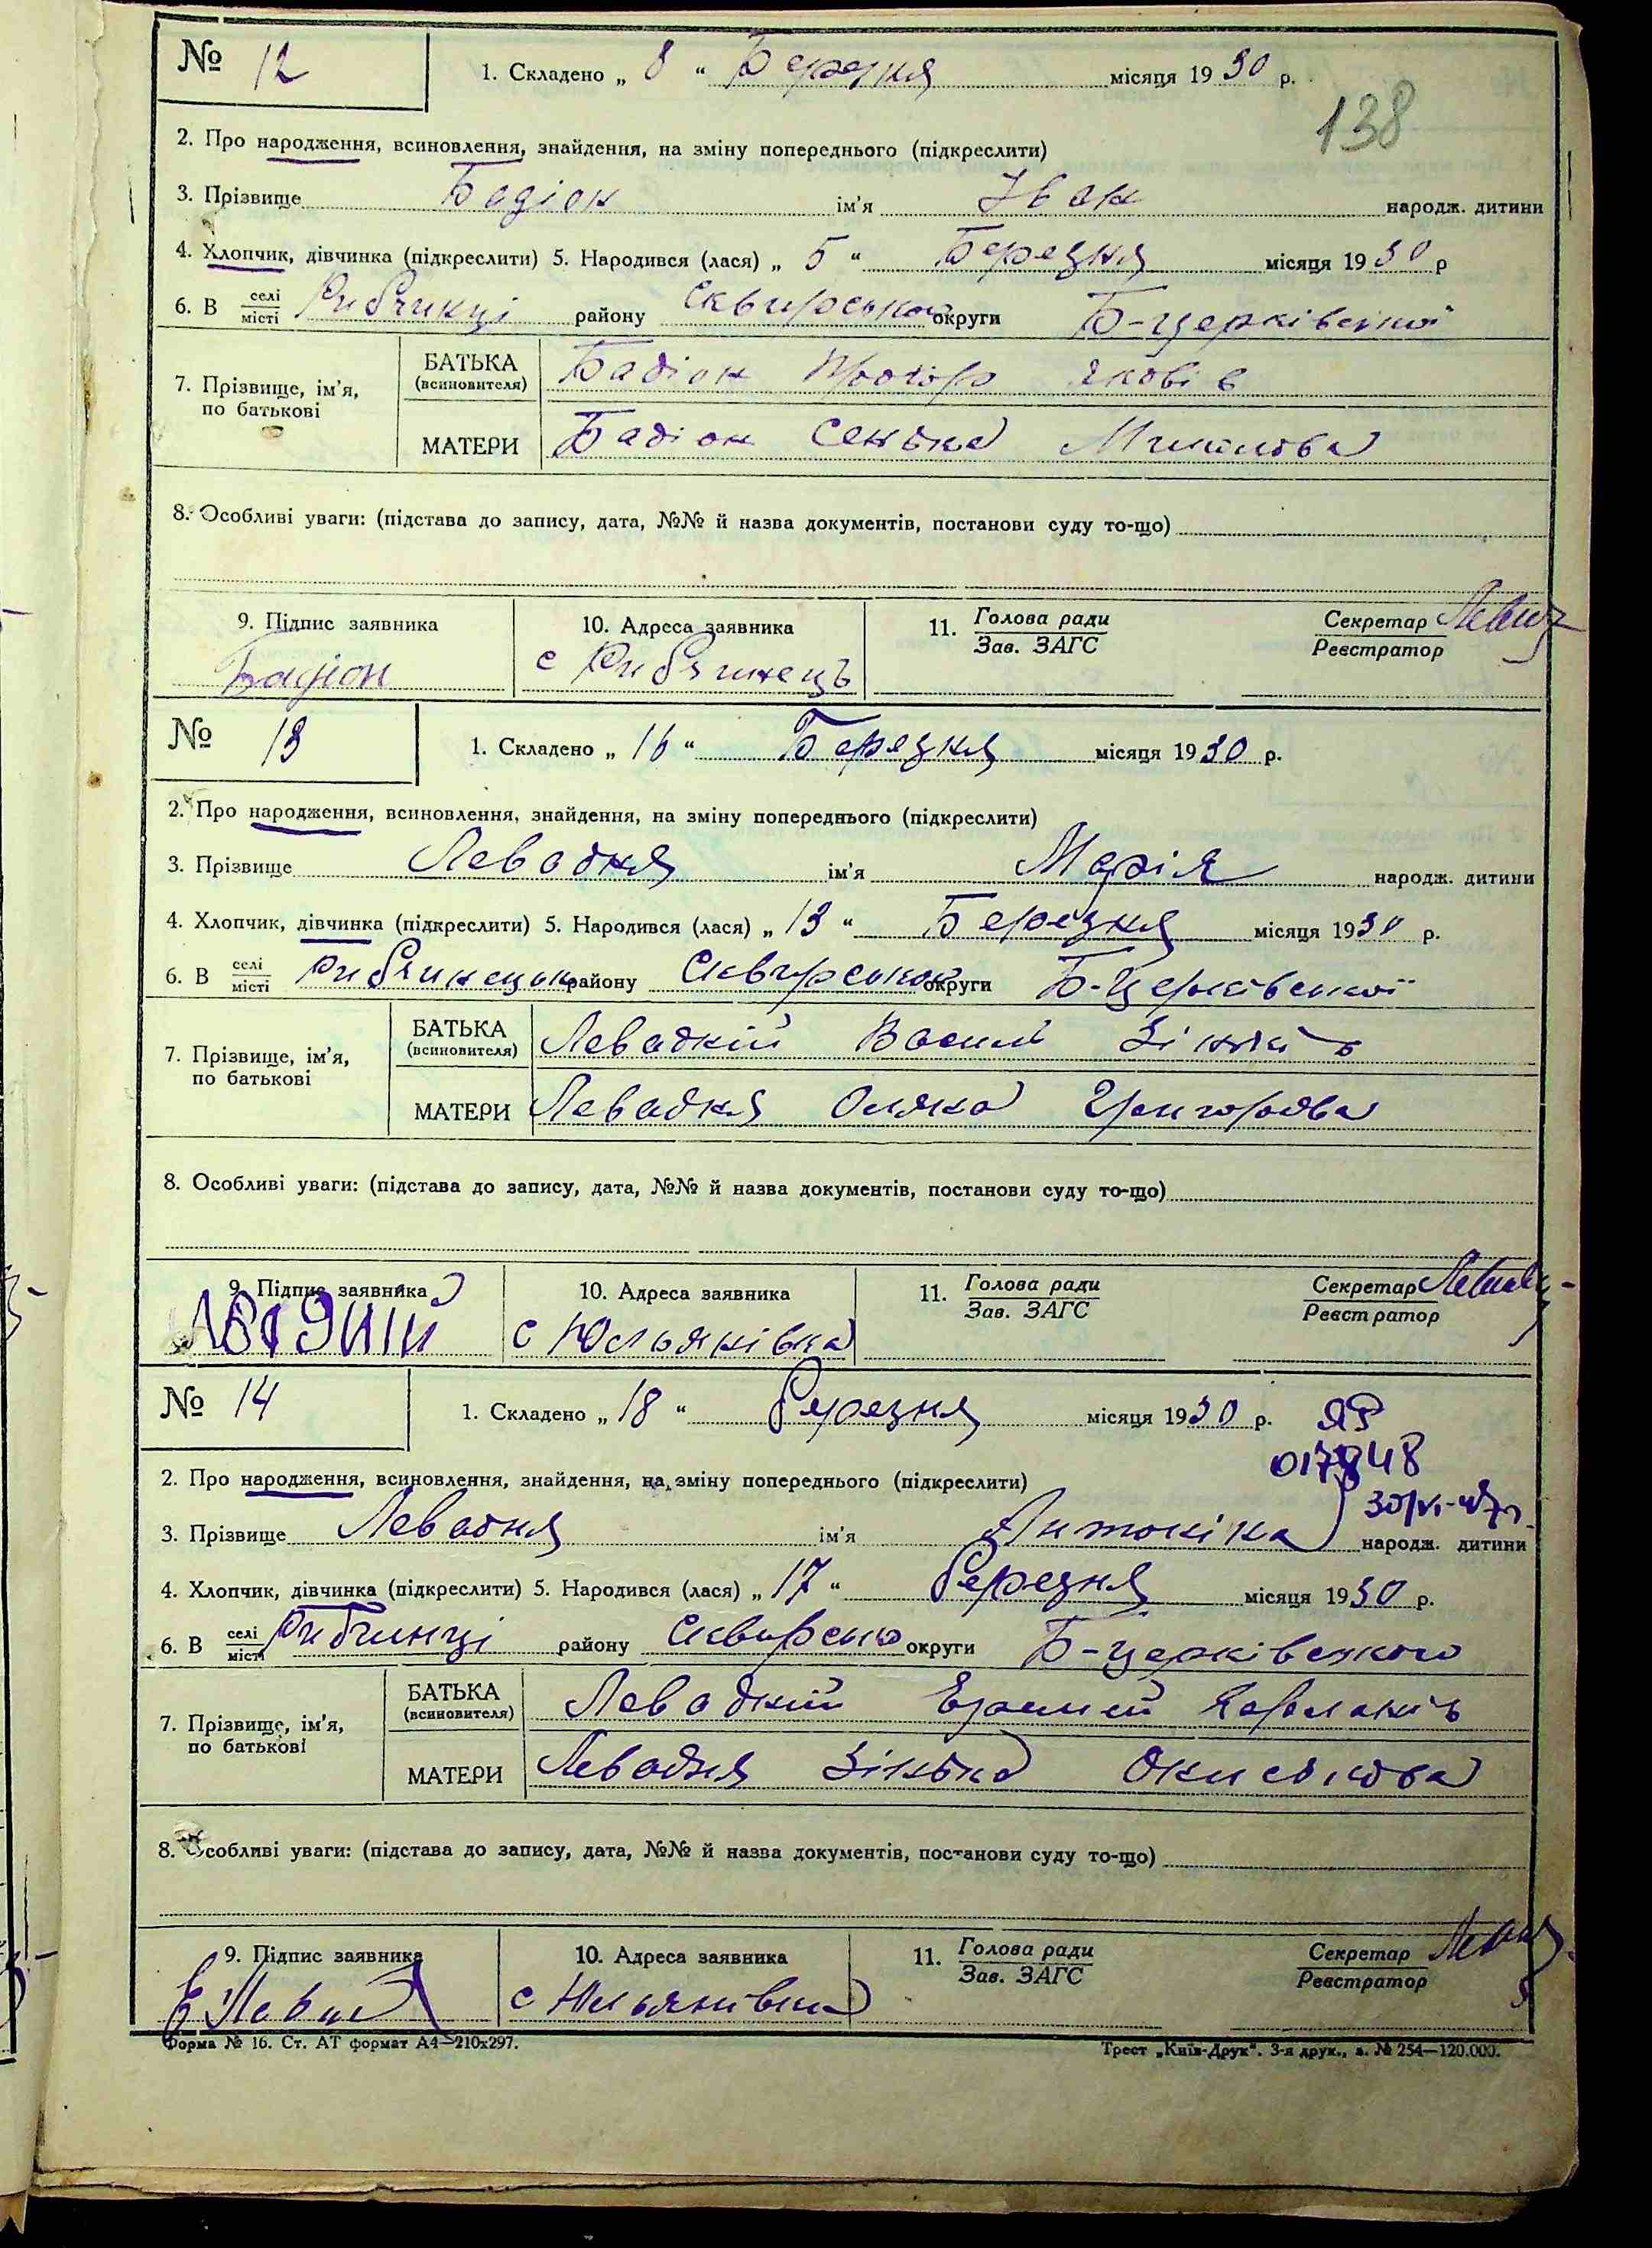 № 12 1. Складено „ 8 “ Березня місяця 1930 р.
138
2. Про народження, всиновлення, знайдення, на зміну попереднього (підкреслити)
3. Прізвище Бадіон ім'я Іван народж. дитини
4. Хлопчик, дівчинка (підкреслити) 5. Народився (лася) „ 5 “ Березня місяця 1930 р
6. В селі місті Рибчинці району Сквирського округи Б-Церківської
7. Прізвище, ім'я, по батькові
БАТЬКА (всиновителя) Бадіон Прохор Якові в
МАТЕРИ Бадіон Сенька Миколова
8. Особливі уваги: (підстава до запису, дата, №№ й назва документів, постанови суду то-що)
9. Підпис заявника 10. Адреса заявника 11. Голова ради Зав. ЗАГС Секретар Реєстратор
Бадіон с Рибчинець
№ 13 1. Складено „ 16 “ Березня місяця 1930 р.
2. Про народження, всиновлення, знайдення, на зміну попереднього (підкреслити)
3. Прізвище Левадня ім'я Марія народж. дитини
4. Хлопчик, дівчинка (підкреслити) 5. Народився (лася) „ 13 “ Березня місяця 1930 р.
6. В селі місті району Сквирського округи Б-Церківської
7. Прізвище, ім'я, по батькові
БАТЬКА (всиновителя) Левадній Василь Зіньків
МАТЕРИ Левадня Оляна Григорова
8. Особливі уваги: (підстава до запису, дата, №№ й назва документів, постанови суду то-що)
9. Підпис заявника 10. Адреса заявника 11. Голова ради Зав. ЗАГС Секретар Реєстратор
с Юльянівка
№ 14 1. Складено „ 18 “ Березня місяця 1930 р.
ЯР
2. Про народження, всиновлення, знайдення, на зміну попереднього (підкреслити)
3. Прізвище Левадня ім'я Антоніна народж. дитини
4. Хлопчик, дівчинка (підкреслити) 5. Народився (лася) „ 17 “ Березня місяця 1930 р.
6. В селі місті Рибчинці району Сквирсько округи Б-Церківського
7. Прізвище, ім'я, по батькові
БАТЬКА (всиновителя) Левадній
МАТЕРИ Левадня Зінька
8. Особливі уваги: (підстава до запису, дата, №№ й назва документів, постанови суду то-що)
9. Підпис заявника 10. Адреса заявника 11. Голова ради Зав. ЗАГС Секретар Реєстратор
с Юльянівка
Форма № 16. Ст. АТ формат А4—210х297. Трест „Київ-Друк“. 3-я друк., з. № 254—120.000.